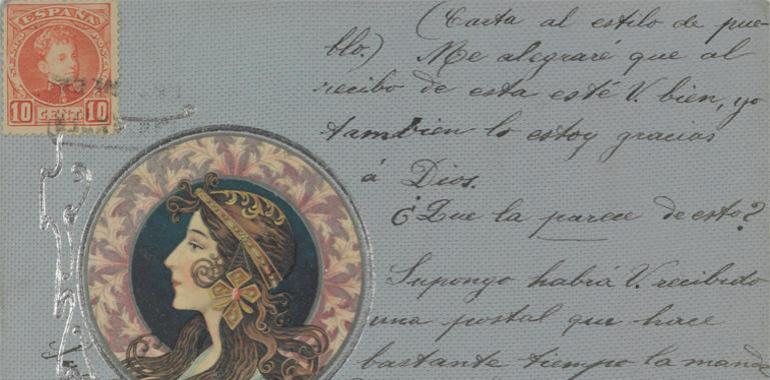 ESPAÑA
10 CENT. 10
(Carta al estilo de pue-
blo.) Me alegraré que al
recibo de esta esté V. bien, yo
tambien lo estoy gracias
á Dios.
¿Que la parece de esto?
Supongo habrá V. recibido
una postal que hace
bastante tiempo la mandé